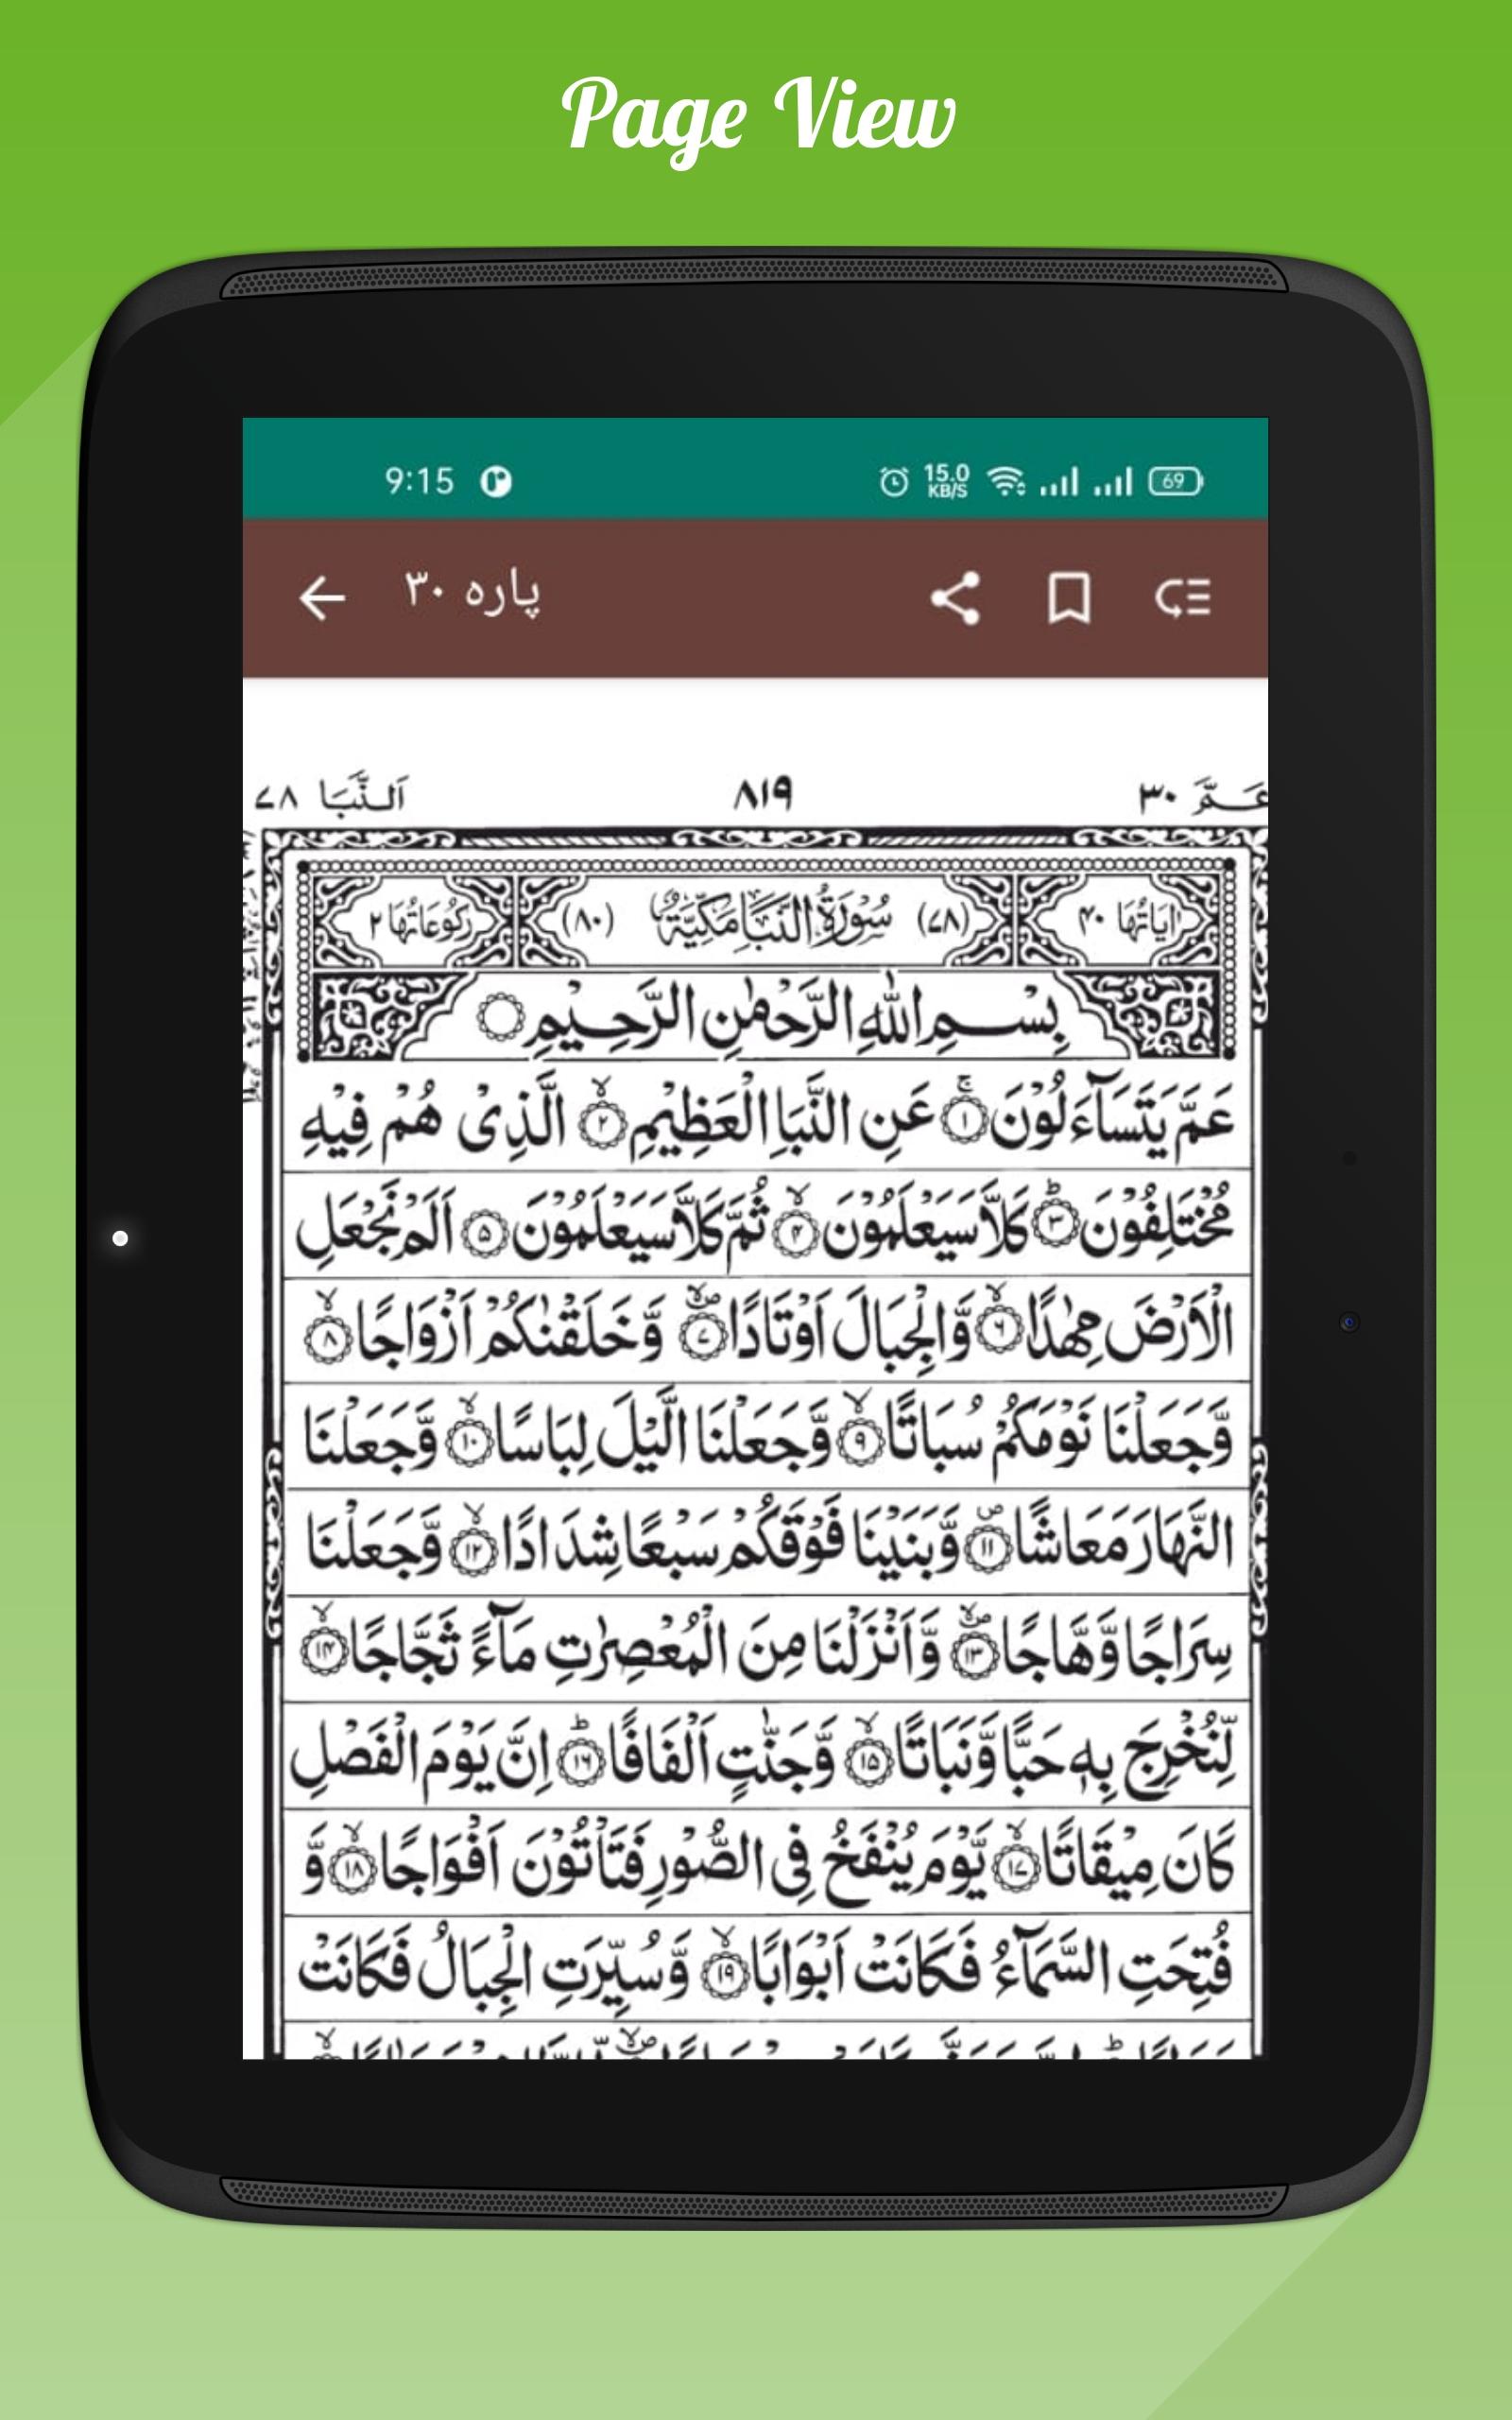 Page View
9:15 15.0 KB/S 69
پاره ۳۰
عَـمَّ ۳۰ ۸۱۹ اَلنَّبَا ۷۸
اٰيَاتُهَا ۴۰ (۷۸) سُوْرَةُ النَّبَاِ مَكِّيَّةٌ (۸۰) رُكُوْعَاتُهَا ۲
بِسْــمِ اللهِ الرَّحْمٰنِ الرَّحِـيْمِ
عَمَّ يَتَسَآءَلُوْنَ ۚ﴿۱﴾ عَنِ النَّبَاِ الْعَظِيْمِ ۙ﴿۲﴾ الَّذِىْ هُمْ فِيْهِ
مُخْتَلِفُوْنَ ؕ﴿۳﴾ كَلَّا سَيَعْلَمُوْنَ ۙ﴿۴﴾ ثُمَّ كَلَّا سَيَعْلَمُوْنَ ﴿۵﴾ اَلَمْ نَجْعَلِ
الْاَرْضَ مِهٰدًا ۙ﴿۶﴾ وَّالْجِبَالَ اَوْتَادًا ۪ۙ﴿۷﴾ وَّخَلَقْنٰكُمْ اَزْوَاجًا ۙ﴿۸﴾
وَّجَعَلْنَا نَوْمَكُمْ سُبَاتًا ۙ﴿۹﴾ وَّجَعَلْنَا الَّيْلَ لِبَاسًا ۙ﴿۱۰﴾ وَّجَعَلْنَا
النَّهَارَ مَعَاشًا ۪﴿۱۱﴾ وَّبَنَيْنَا فَوْقَكُمْ سَبْعًا شِدَادًا ۙ﴿۱۲﴾ وَّجَعَلْنَا
سِرَاجًا وَّهَّاجًا ۪ۙ﴿۱۳﴾ وَّاَنْزَلْنَا مِنَ الْمُعْصِرٰتِ مَآءً ثَجَّاجًا ۙ﴿۱۴﴾
لِّنُخْرِجَ بِهٖ حَبًّا وَّنَبَاتًا ۙ﴿۱۵﴾ وَّجَنّٰتٍ اَلْفَافًا ؕ﴿۱۶﴾ اِنَّ يَوْمَ الْفَصْلِ
كَانَ مِيْقَاتًا ۙ﴿۱۷﴾ يَّوْمَ يُنْفَخُ فِى الصُّوْرِ فَتَاْتُوْنَ اَفْوَاجًا ۙ﴿۱۸﴾ وَّ
فُتِحَتِ السَّمَآءُ فَكَانَتْ اَبْوَابًا ۙ﴿۱۹﴾ وَّسُيِّرَتِ الْجِبَالُ فَكَانَتْ